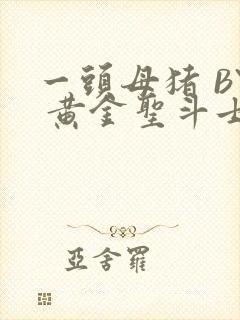 一頭母猪 B
黄金聖斗士
亞舍羅